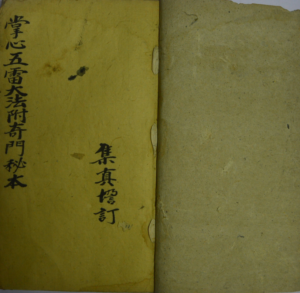 掌心五雷大法附奇門秘本
集真增訂